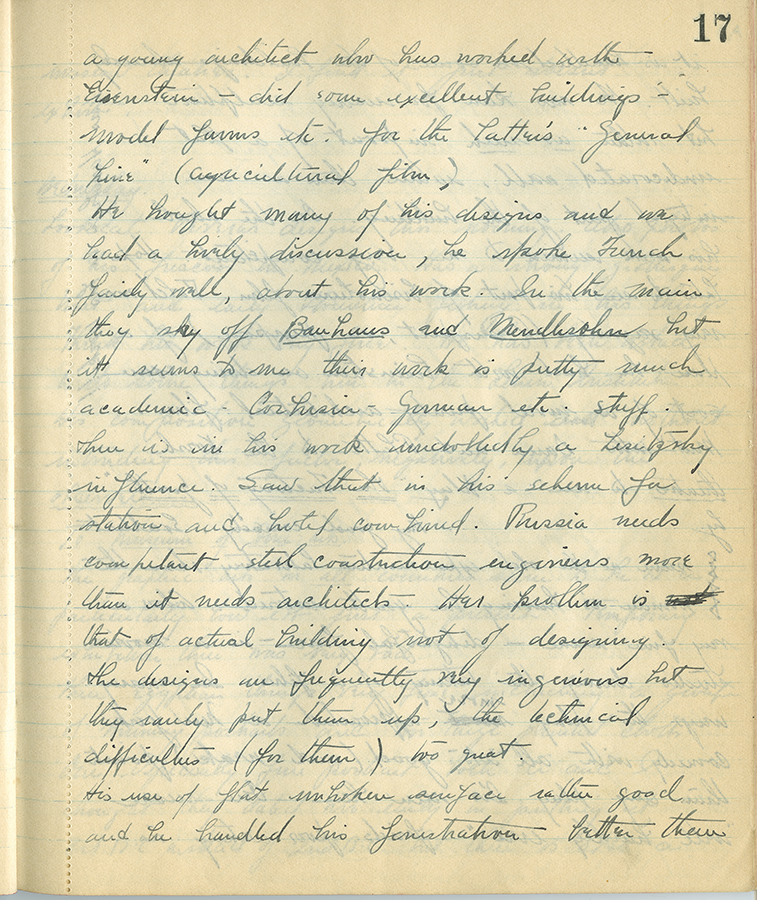 17
a young architect who has worked with
Eisenstein – did some excellent buildings –
model farms etc. for the latter's "General
Line" (agricultural film)
He brought many of his designs and we
had a lively discussion, he spoke French
fairly well, about his work. In the main
they shy off Bauhaus and Mendlesohn but
it seems to me their work is pretty much
academic – Corbusier – German etc. stuff.
there is in his work undoubtedly a Lesitzsky
influence. Saw that in his scheme for
station and hotel combined. Russia needs
competant steel construction engineers more
than it needs architects. Her problem is
that of actual building not of designing.
The designs are frequently very ingenious but
they rarely put them up, the technical
difficulties (for them) too great.
His use of flat unbroken surface rather good
and he handled his fenestration better than